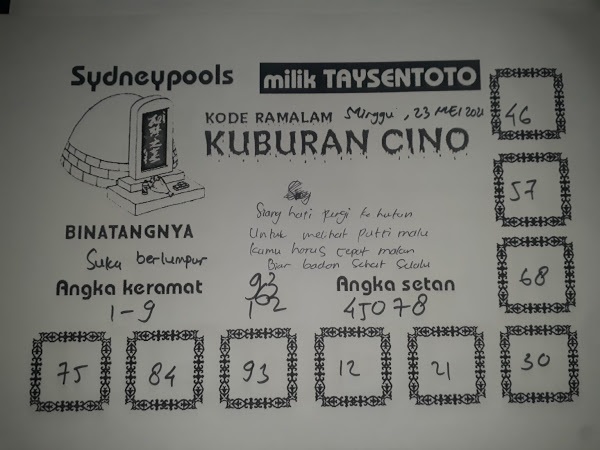 Sydneypools
milik TAYSENTOTO
KODE RAMALAM Minggu, 23 MEI 2021
KUBURAN CINO
46
57
68
Siang hati pergi ke hutan
Untuk melihat putri malu
Kamu harus cepat makan
Biar badan sehat selalu
BINATANGNYA
Suka berlumpur
Angka keramat
1-9
93
162
Angka setan
45078
75 84 93 12 21 30